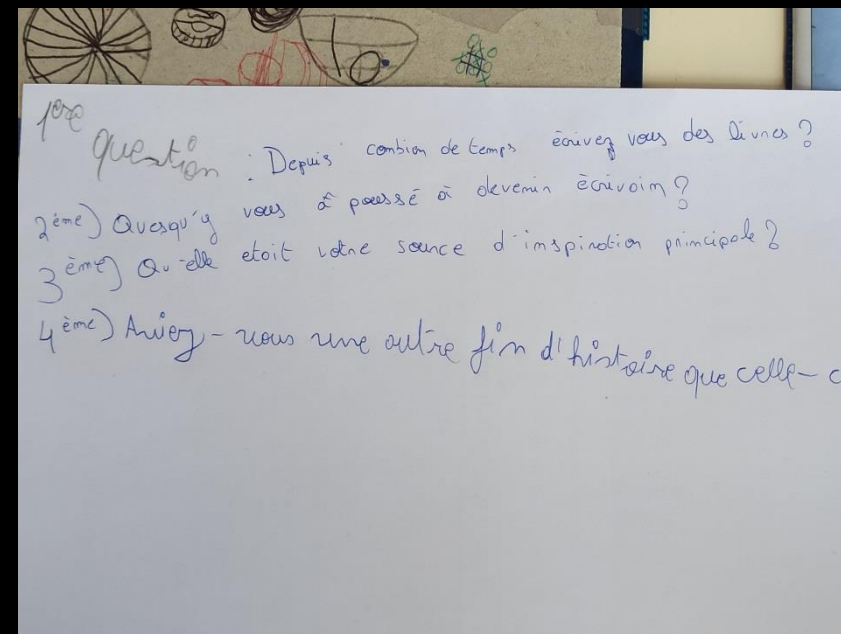 1ère question : Depuis combien de temps écrivez vous des livres ?
2ème) Quesqu'y vous à poussé à devenir écrivain ?
3ème) Qu-elle etait votre source d'inspiration principale ?
4ème) Aviez-vous une autre fin d'histoire que celle-c